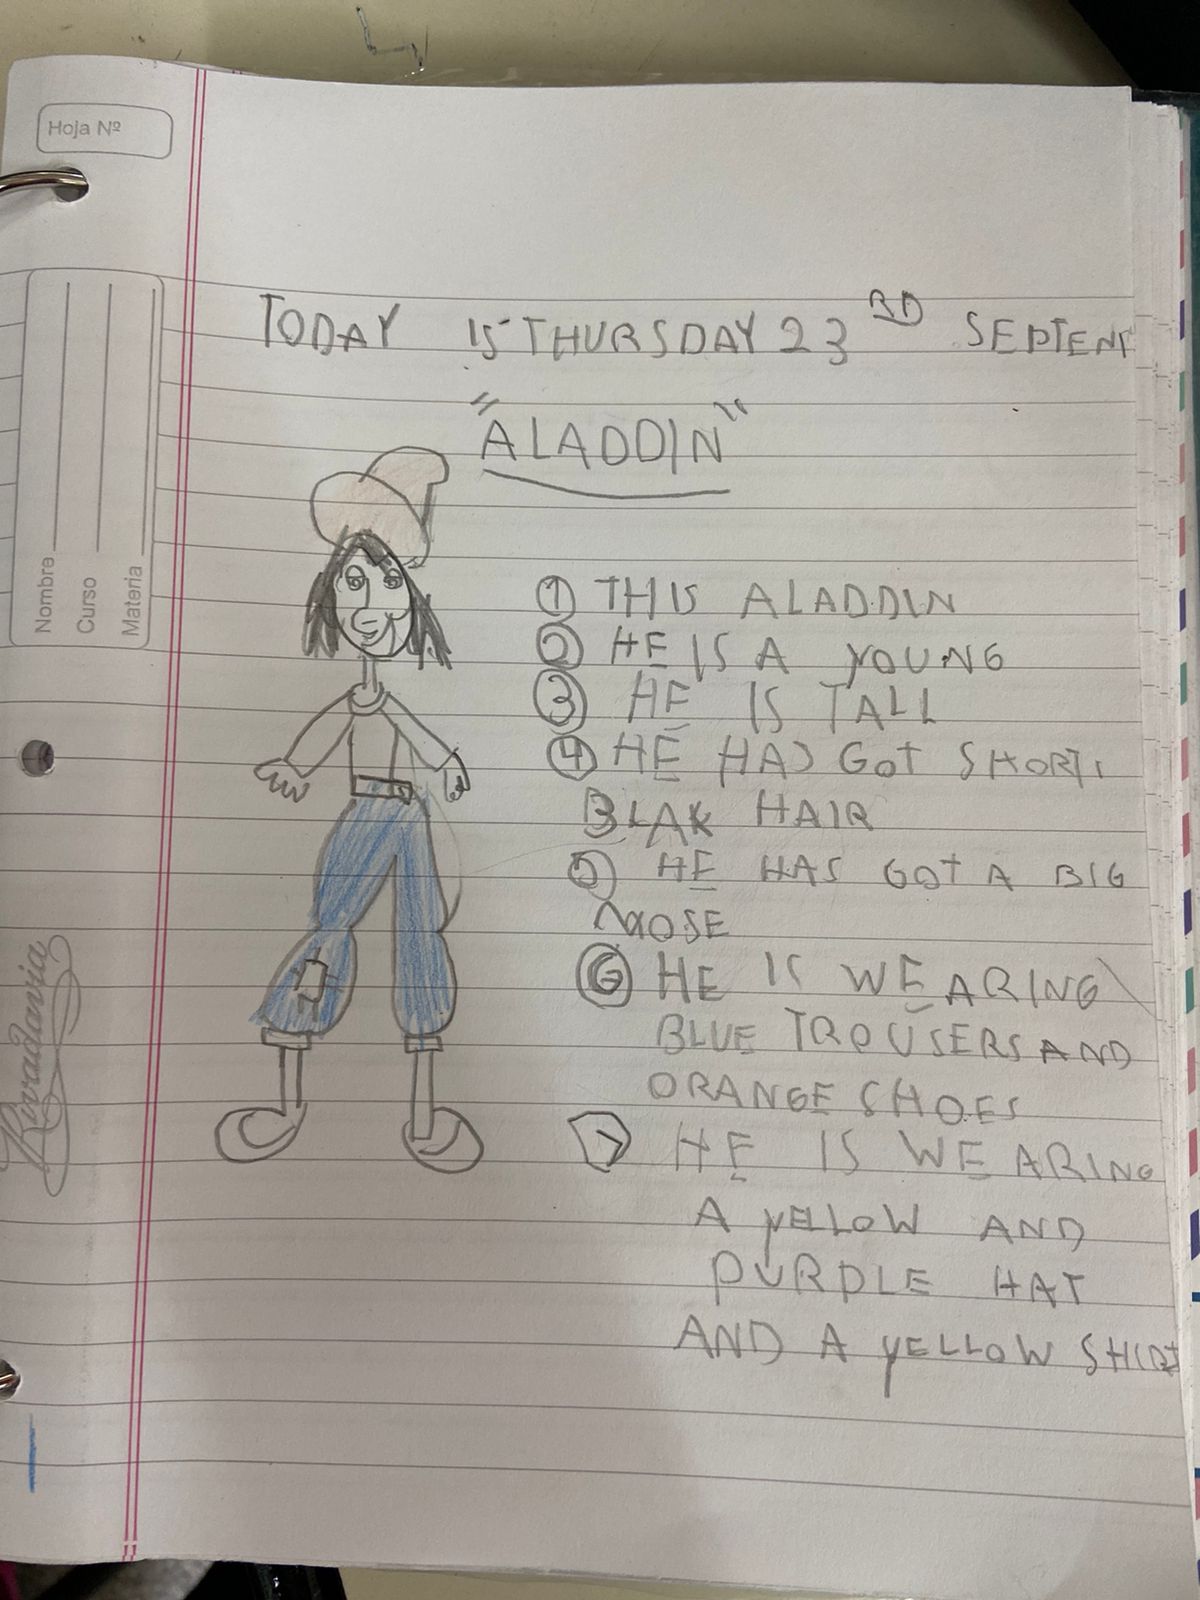 Hoja Nº
Nombre
Curso
Materia
Rivadavia
TODAY IS THURSDAY 23 RD SEPTEM
"ALADDIN"
1 THIS ALADDIN
2 HE IS A YOUNG
3 HE IS TALL
4 HE HAS GOT SHORT
BLAK HAIR
5 HE HAS GOT A BIG
NOSE
6 HE IS WEARING
BLUE TROUSERS AND
ORANGE SHOES
7 HE IS WEARING
A YELLOW AND
PURPLE HAT
AND A YELLOW SHIRT